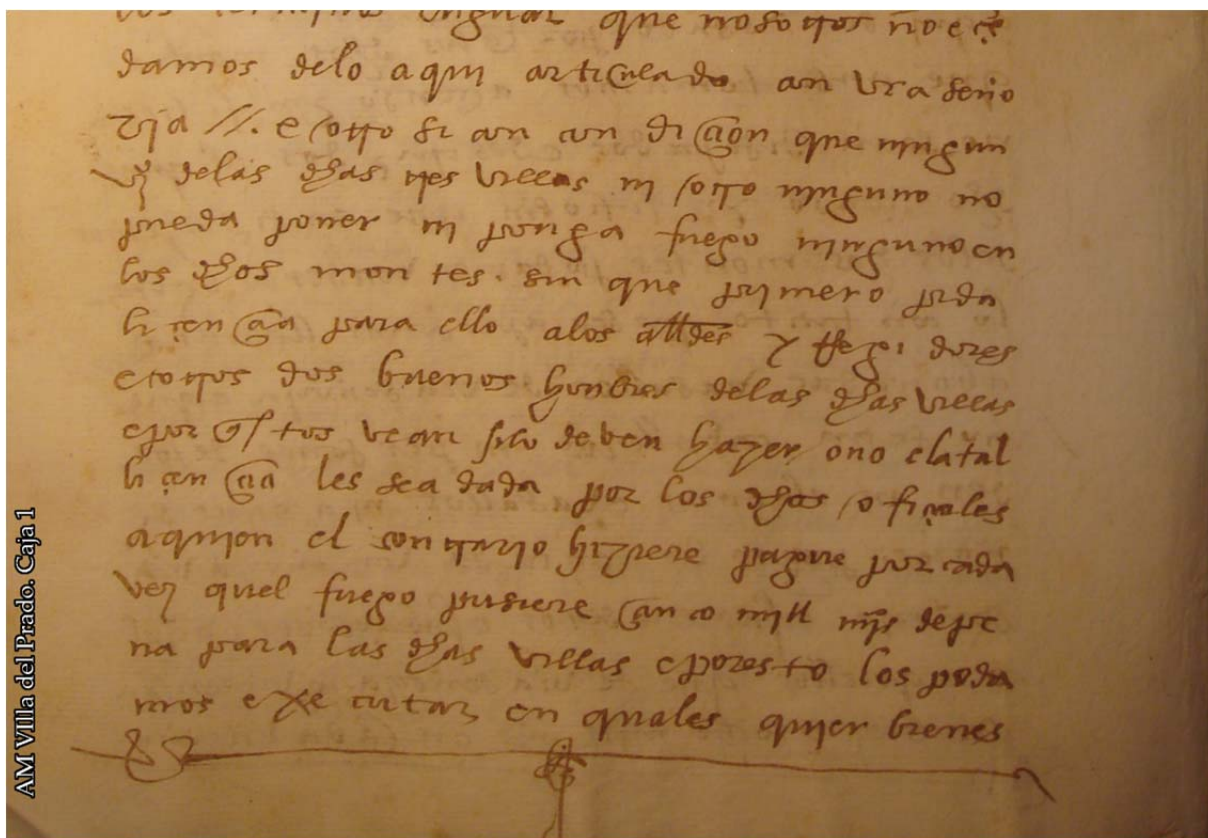 que nosotros no
damos delo aqui articulado con vra seño
ria //. e otro si con condiçion que ningun
vz delas dhas tres villas ni otro ninguno no
pueda poner ni ponga fuego ninguno en
los dhos montes. sin que primero pida
liçençia para ello alos alldes y rregidores
e otros dos buenos honbres delas dhas villas
e por estos vean si lo deven hazer o no e la tal
liçençia les sea dada por los dhos ofiçiales
a quien el contrario hiziere pague por cada
vez quel fuego pusiere çinco mill mrs de pe
na para las dhas villas e por esto los poda
mos exe cutar en quales quier bienes
AM Villa del Prado. Caja 1